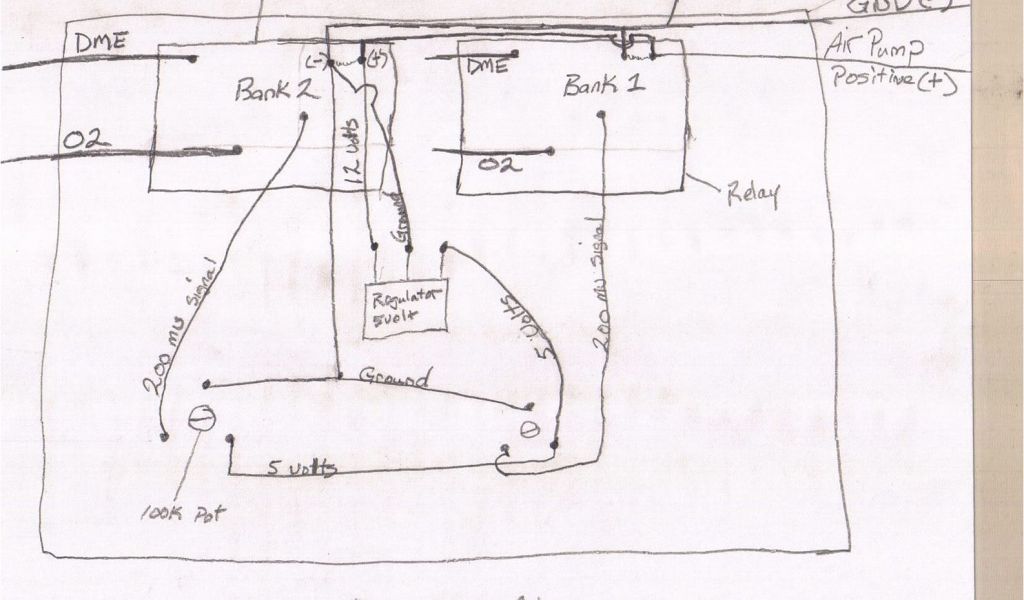 DME
(-)
(+)
DME
Air Pump
Positive (+)
Bank 2
Bank 1
O2
12 Volts
O2
Relay
Ground
200 mv Signal
Regulator
5volt
5 Volts
200 mv Signal
Ground
5 volts
100K Pot